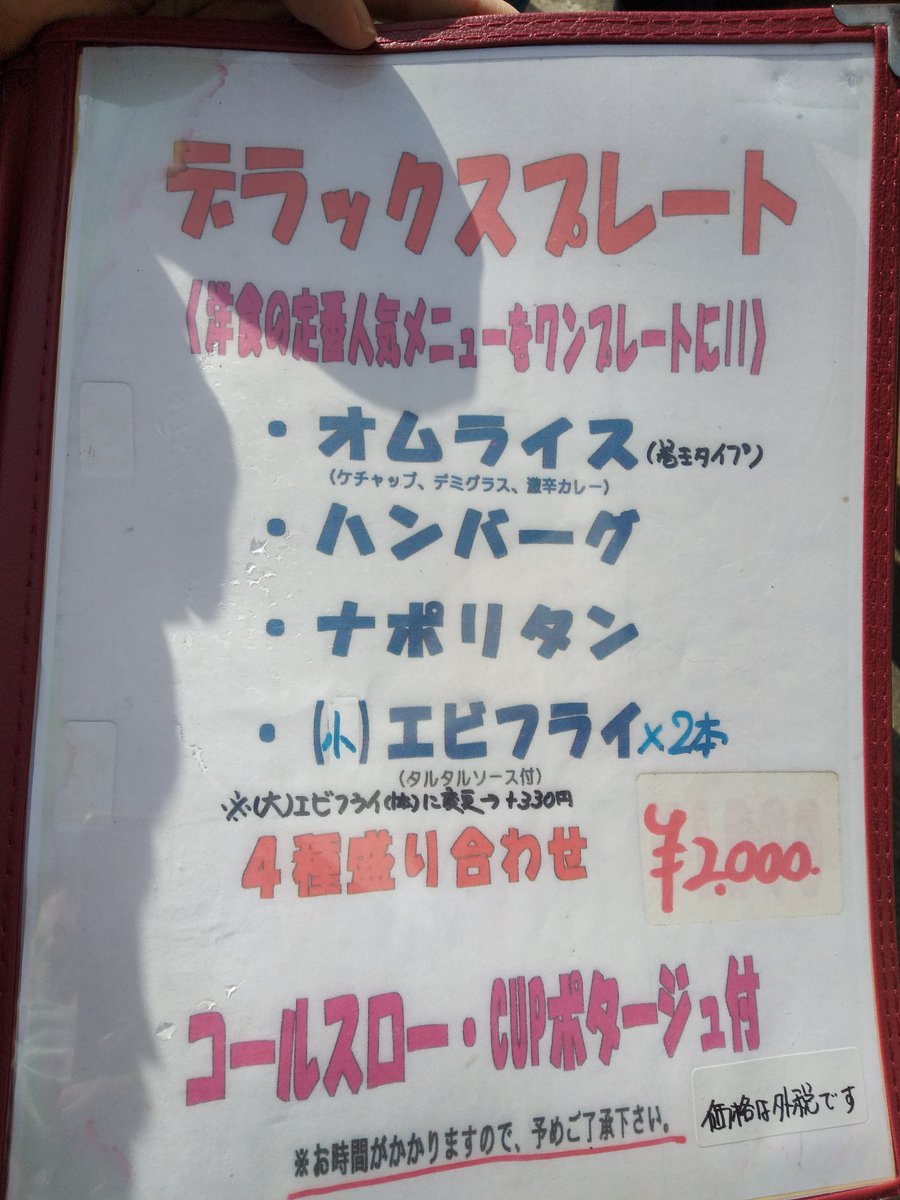 デラックスプレート
〈洋食の定番人気メニューをワンプレートに!!〉
・オムライス(巻きタイプ)
(ケチャップ、デミグラス、激辛カレー)
・ハンバーグ
・ナポリタン
・(小)エビフライ×2本
(タルタルソース付)
※(大)エビフライ(1本)に変更→+330円
4種盛り合わせ
¥2,000.
コールスロー・CUPポタージュ付
価格は外税です
※お時間がかかりますので、予めご了承下さい。